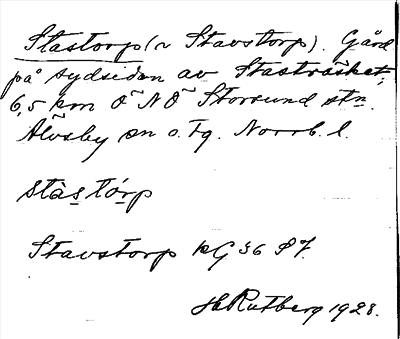 Stastorp (r Stavstorp). Gård
på sydsidan av Stasträsket;
6,5 km Ö NÖ Storsund stn.
Älvsby sn o. tg. Norrb. l.
stàstórp
Stavstorp KG 36 P 7.
HRutberg 1928.